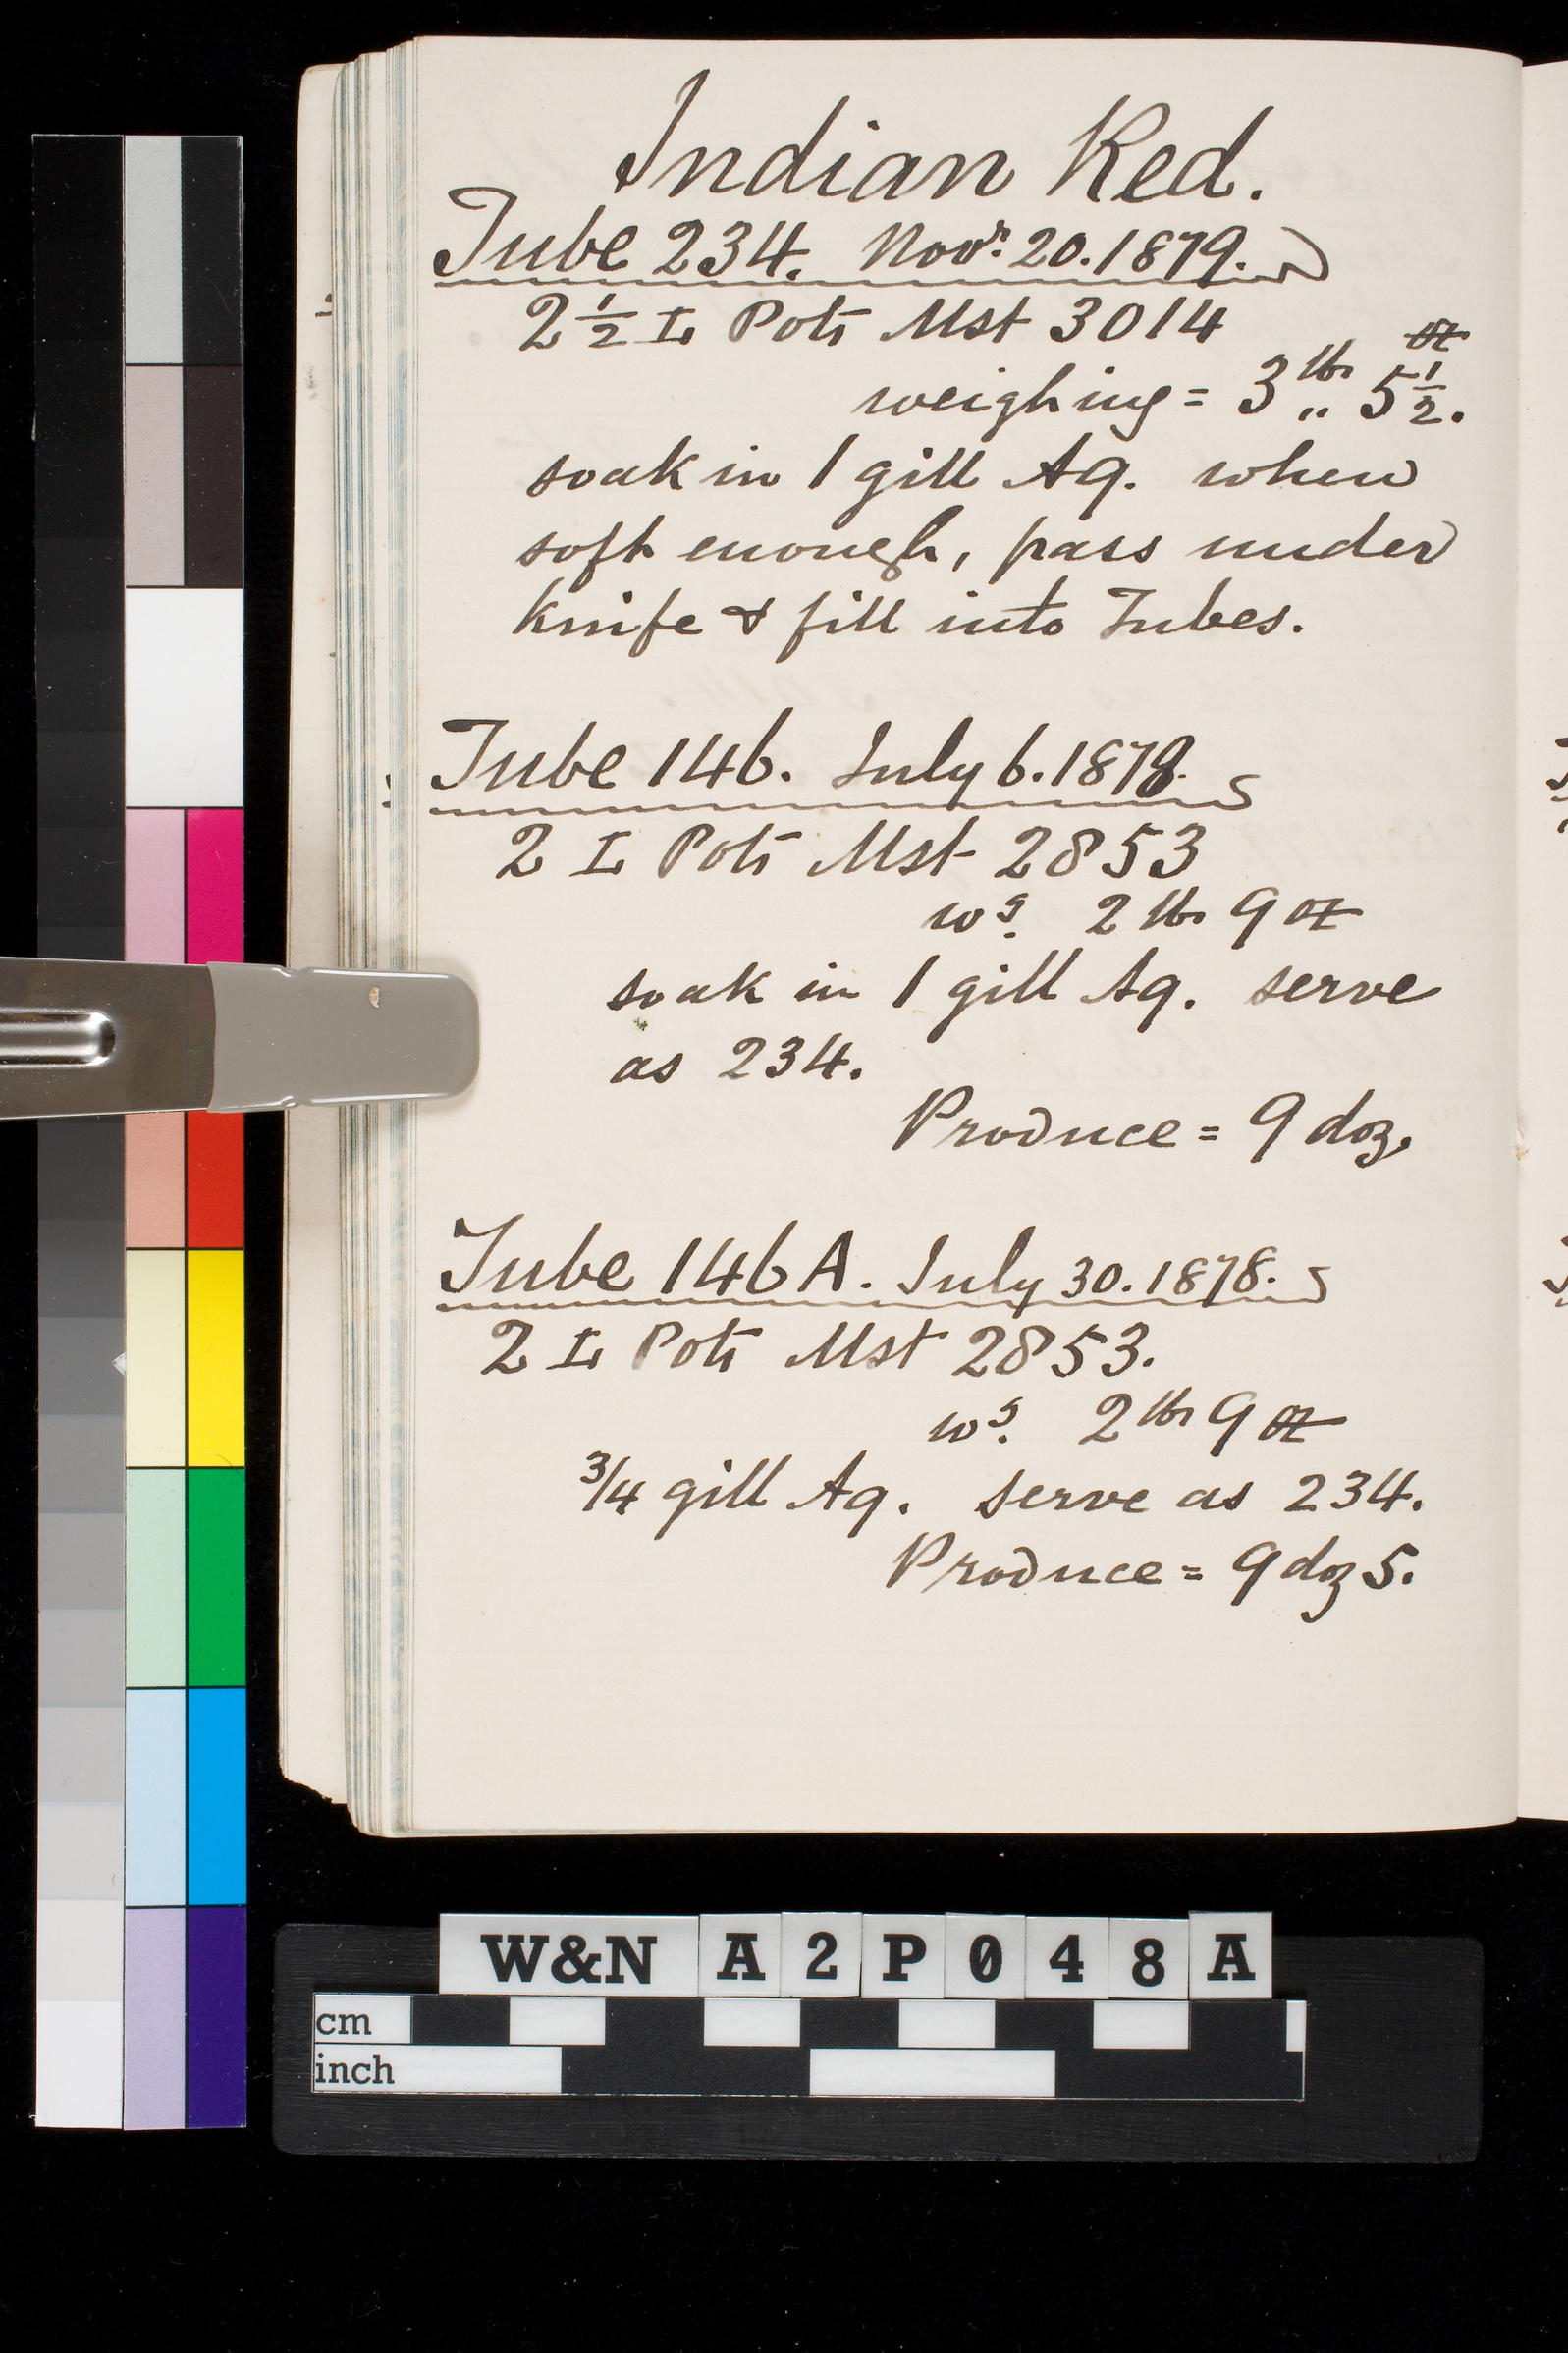 Indian Red.
Tube 234. Novr. 20. 1879.
2 1/2 L Pots Mst 3014
weighing = 3 lbs 5 1/2 oz.
soak in 1 gill Aq. when
soft enough, pass under
knife & fill into Tubes.
Tube 146. July 6. 1878.
2 L Pots Mst 2853
wg. 2 lbs 9 oz
soak in 1 gill Aq. serve
as 234.
Produce = 9 doz.
Tube 146A. July 30. 1878.
2 L Pots Mst 2853.
wg. 2 lbs 9 oz
3/4 gill Aq. serve as 234.
Produce = 9 doz 5.
W&N A 2 P 0 4 8 A
cm
inch